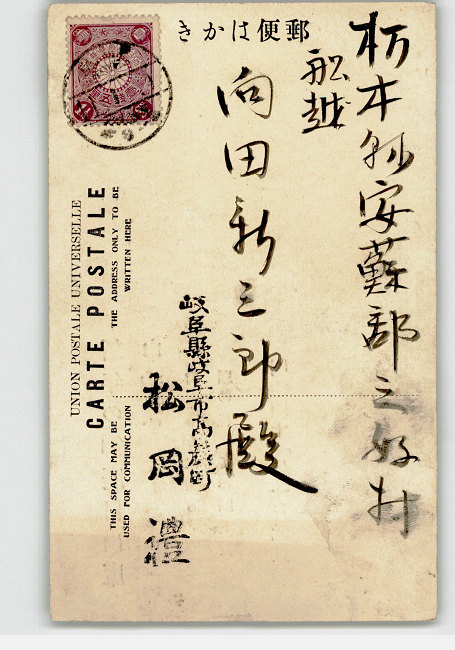 郵便はかき
栃木縣安蘇郡三好村
船越
向田新三郎殿
岐阜縣岐阜市高巌町
松岡禮
UNION POSTALE UNIVERSELLE
CARTE POSTALE
THE ADDRESS ONLY TO BE
WRITTEN HERE
THIS SPACE MAY BE
USED FOR COMMUNICATION